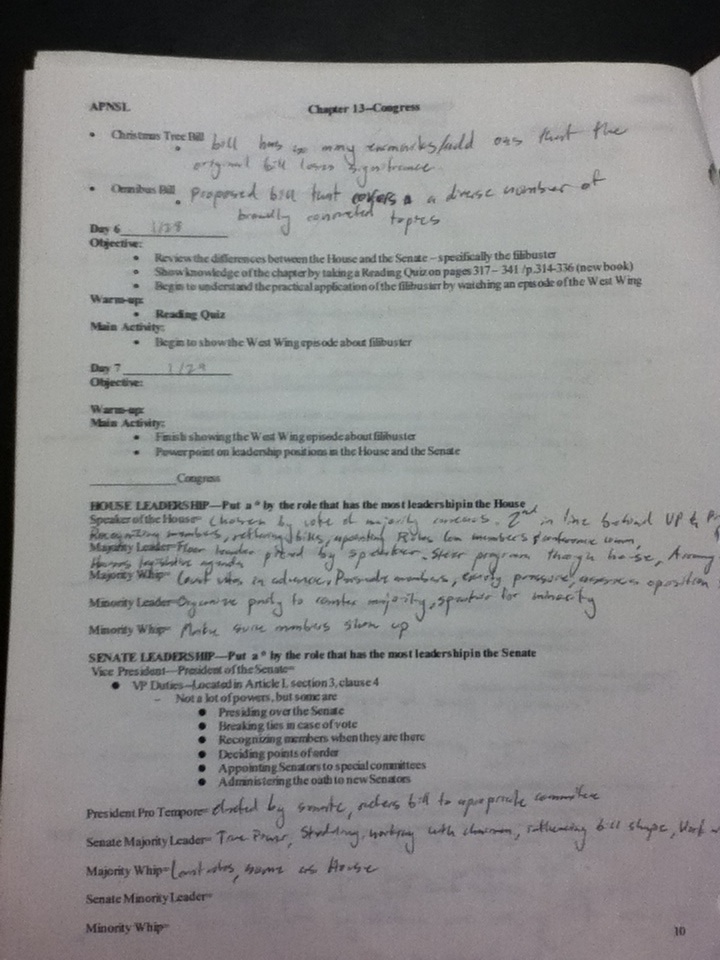 APNSL Chapter 13–Congress
• Christmas Tree Bill bill has so many earmarks/add ons that the
• original bill loses significance
• Omnibus Bill • proposed bill that covers a diverse number of
broadly connected topics
Day 6 1/28
Objective:
• Review the differences between the House and the Senate – specifically the filibuster
• Show knowledge of the chapter by taking a Reading Quiz on pages 317 – 341 /p.314-336 (new book)
• Begin to understand the practical application of the filibuster by watching an episode of the West Wing
Warm-up:
• Reading Quiz
Main Activity:
• Begin to show the West Wing episode about filibuster
Day 7 1/29
Objective:
Warm-up:
Main Activity:
• Finish showing the West Wing episode about filibuster
• Powerpoint on leadership positions in the House and the Senate
Congress
HOUSE LEADERSHIP—Put a * by the role that has the most leadership in the House
Speaker of the House= chosen by vote of majority 2nd in line behind VP &
Recognizing members, referring bills, appointing Rules com members & conference comm,
Majority Leader= Floor leader picked by speaker. Steer program though house,
legislative agenda
Majority Whip= Count votes in advance, Persuade members, pressure, oposition
Minority Leader= Organize party to counter majority, speaker for minority
Minority Whip= Make sure members show up
SENATE LEADERSHIP—Put a * by the role that has the most leadership in the Senate
Vice President—President of the Senate=
● VP Duties–Located in Article I, section 3, clause 4
– Not a lot of powers, but some are
● Presiding over the Senate
● Breaking ties in case of vote
● Recognizing members when they are there
● Deciding points of order
● Appointing Senators to special committees
● Administering the oath to new Senators
President Pro Tempore= elected by senate, refers bill to apropriate committee
Senate Majority Leader= True Power, working with chairmen, influencing bill shape, Work
Majority Whip= Count votes, same as House
Senate Minority Leader=
Minority Whip=
10